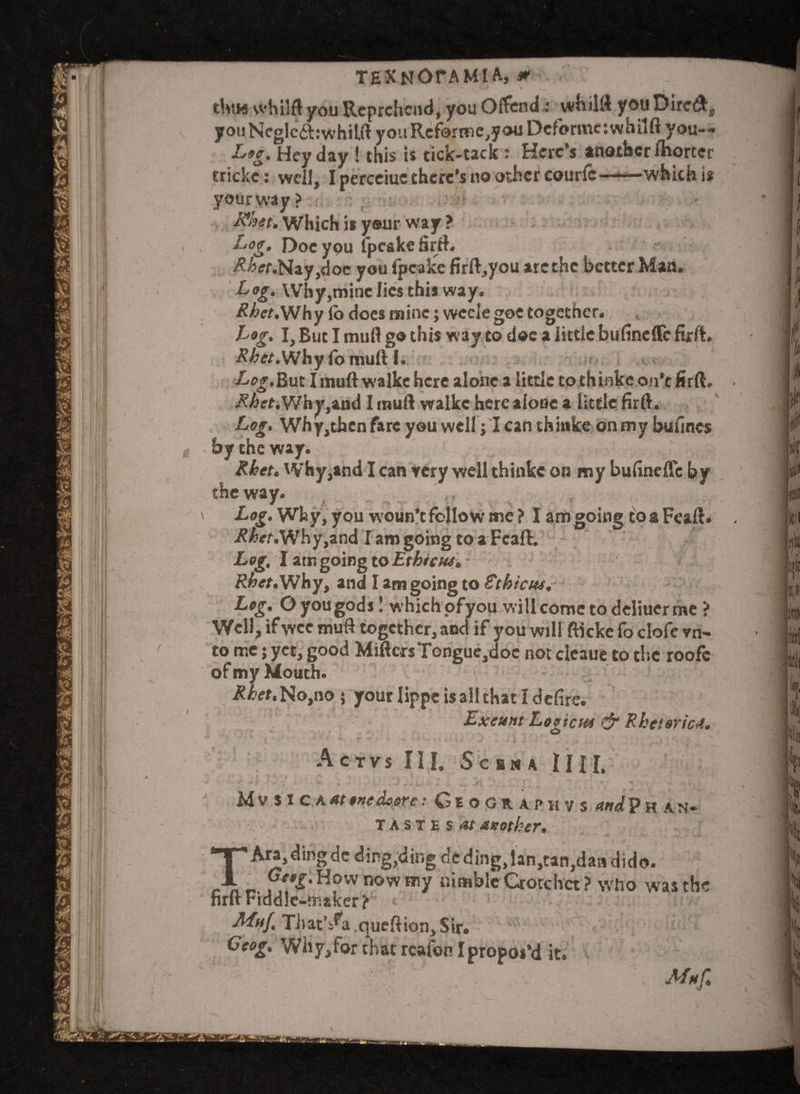 TEXNOΓAMIA, or
thus whilſt you Reprehend, you Offend: whilſt you Direct,
you Neglect: whilſt you Reforme, you Deforme: whilſt you--
Log. Hey day ! this is tick-tack : Here's another ſhorter
tricke: well, I perceiue there's no other courſe——which is
your way ?
Rhet. Which is your way ?
Log. Doe you ſpeake firſt.
Rhet. Nay, doe you ſpeake firſt, you are the better Man.
Log. Why, mine lies this way.
Rhet. Why ſo does mine; weele goe together.
Log. I, But I muſt go this way to doe a little buſineſſe firſt.
Rhet. Why ſo muſt I.
Log. But I muſt walke here alone a little to thinke on't firſt.
Rhet. Why, and I muſt walke here alone a little firſt.
Log. Why, then fare you well; I can thinke on my buſines
by the way.
Rhet. Why, and I can very well thinke on my buſineſſe by
the way.
Log. Why, you woun't follow me ? I am going to a Feaſt.
Rhet. Why, and I am going to a Feaſt.
Log. I am going to Ethicus.
Rhet. Why, and I am going to Ethicus.
Log. O you gods ! which of you will come to deliuer me ?
Well, if wee muſt together, and if you will ſticke ſo cloſe vn-
to me; yet, good Miſters Tongue, doe not cleaue to the roofe
of my Mouth.
Rhet. No, no ; your lippe is all that I deſire.
Exeunt Logicus & Rhetorica.
ACTVS III. SCENA IIII.
MVSICA at one doore: GEOGRAPHVS and PHAN-
TASTES at another.
TAra, ding de ding, ding de ding, lan, tan, dan dido.
Geog. How now my nimble Crotchet ? who was the
firſt Fiddle-maker ?
Muſ. That's a queſtion, Sir.
Geog. Why, for that reaſon I propos'd it.
Muſ.